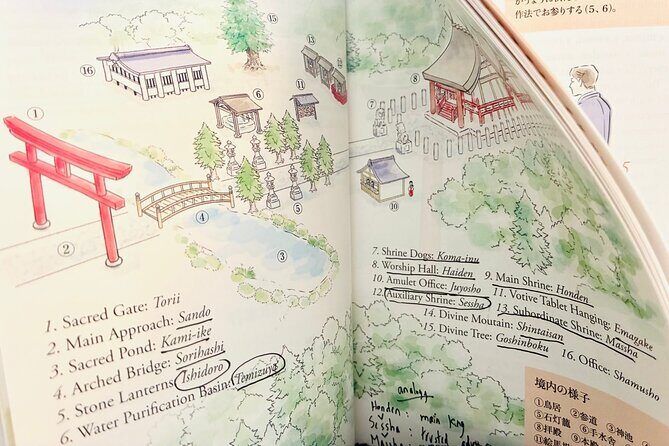 ⑮
⑬
⑯
⑥
⑪
①
⑦
⑧
⑤
④
⑩
②
③
1. Sacred Gate: Torii
2. Main Approach: Sando
3. Sacred Pond: Kami-ike
4. Arched Bridge: Sorihashi
5. Stone Lanterns: Ishidoro
6. Water Purification Basin: Temizuya
7. Shrine Dogs: Koma-inu
8. Worship Hall: Haiden
9. Main Shrine: Honden
10. Amulet Office: Juyosho
11. Votive Tablet Hanging: Emagake
12. Auxiliary Shrine: Sessha
13. Subordinate Shrine: Massha
14. Divine Moutain: Shintaisan
15. Divine Tree: Goshinboku
16. Office: Shamusho
analogy
Honden: main King
境内の様子
①鳥居 ②参道 ③神池
⑤石灯籠 ⑥手水舎
⑧拝殿
作法でお参りする(5、6)。
5